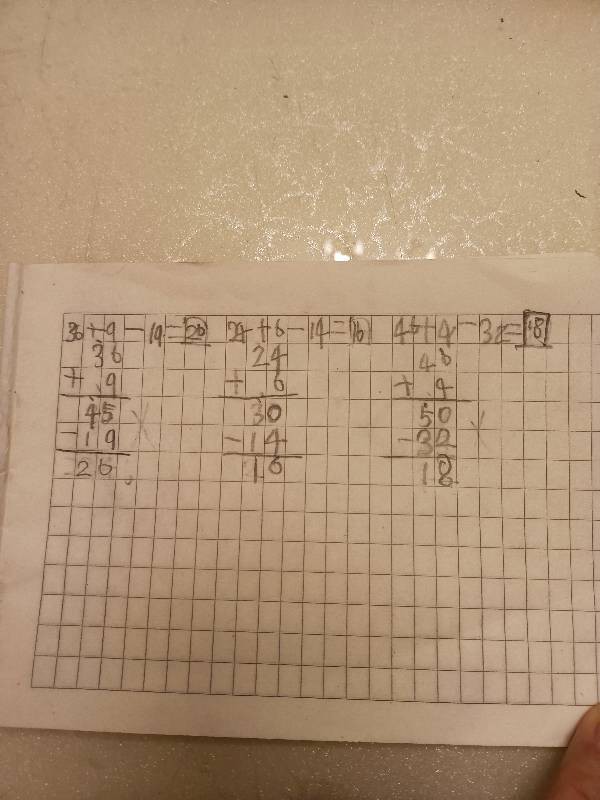 36+9-19=26 24+6-14=16 46+4-32=18
36 24 46
+ 9 + 6 + 4
45 30 50
-19 -14 -32
26 16 18